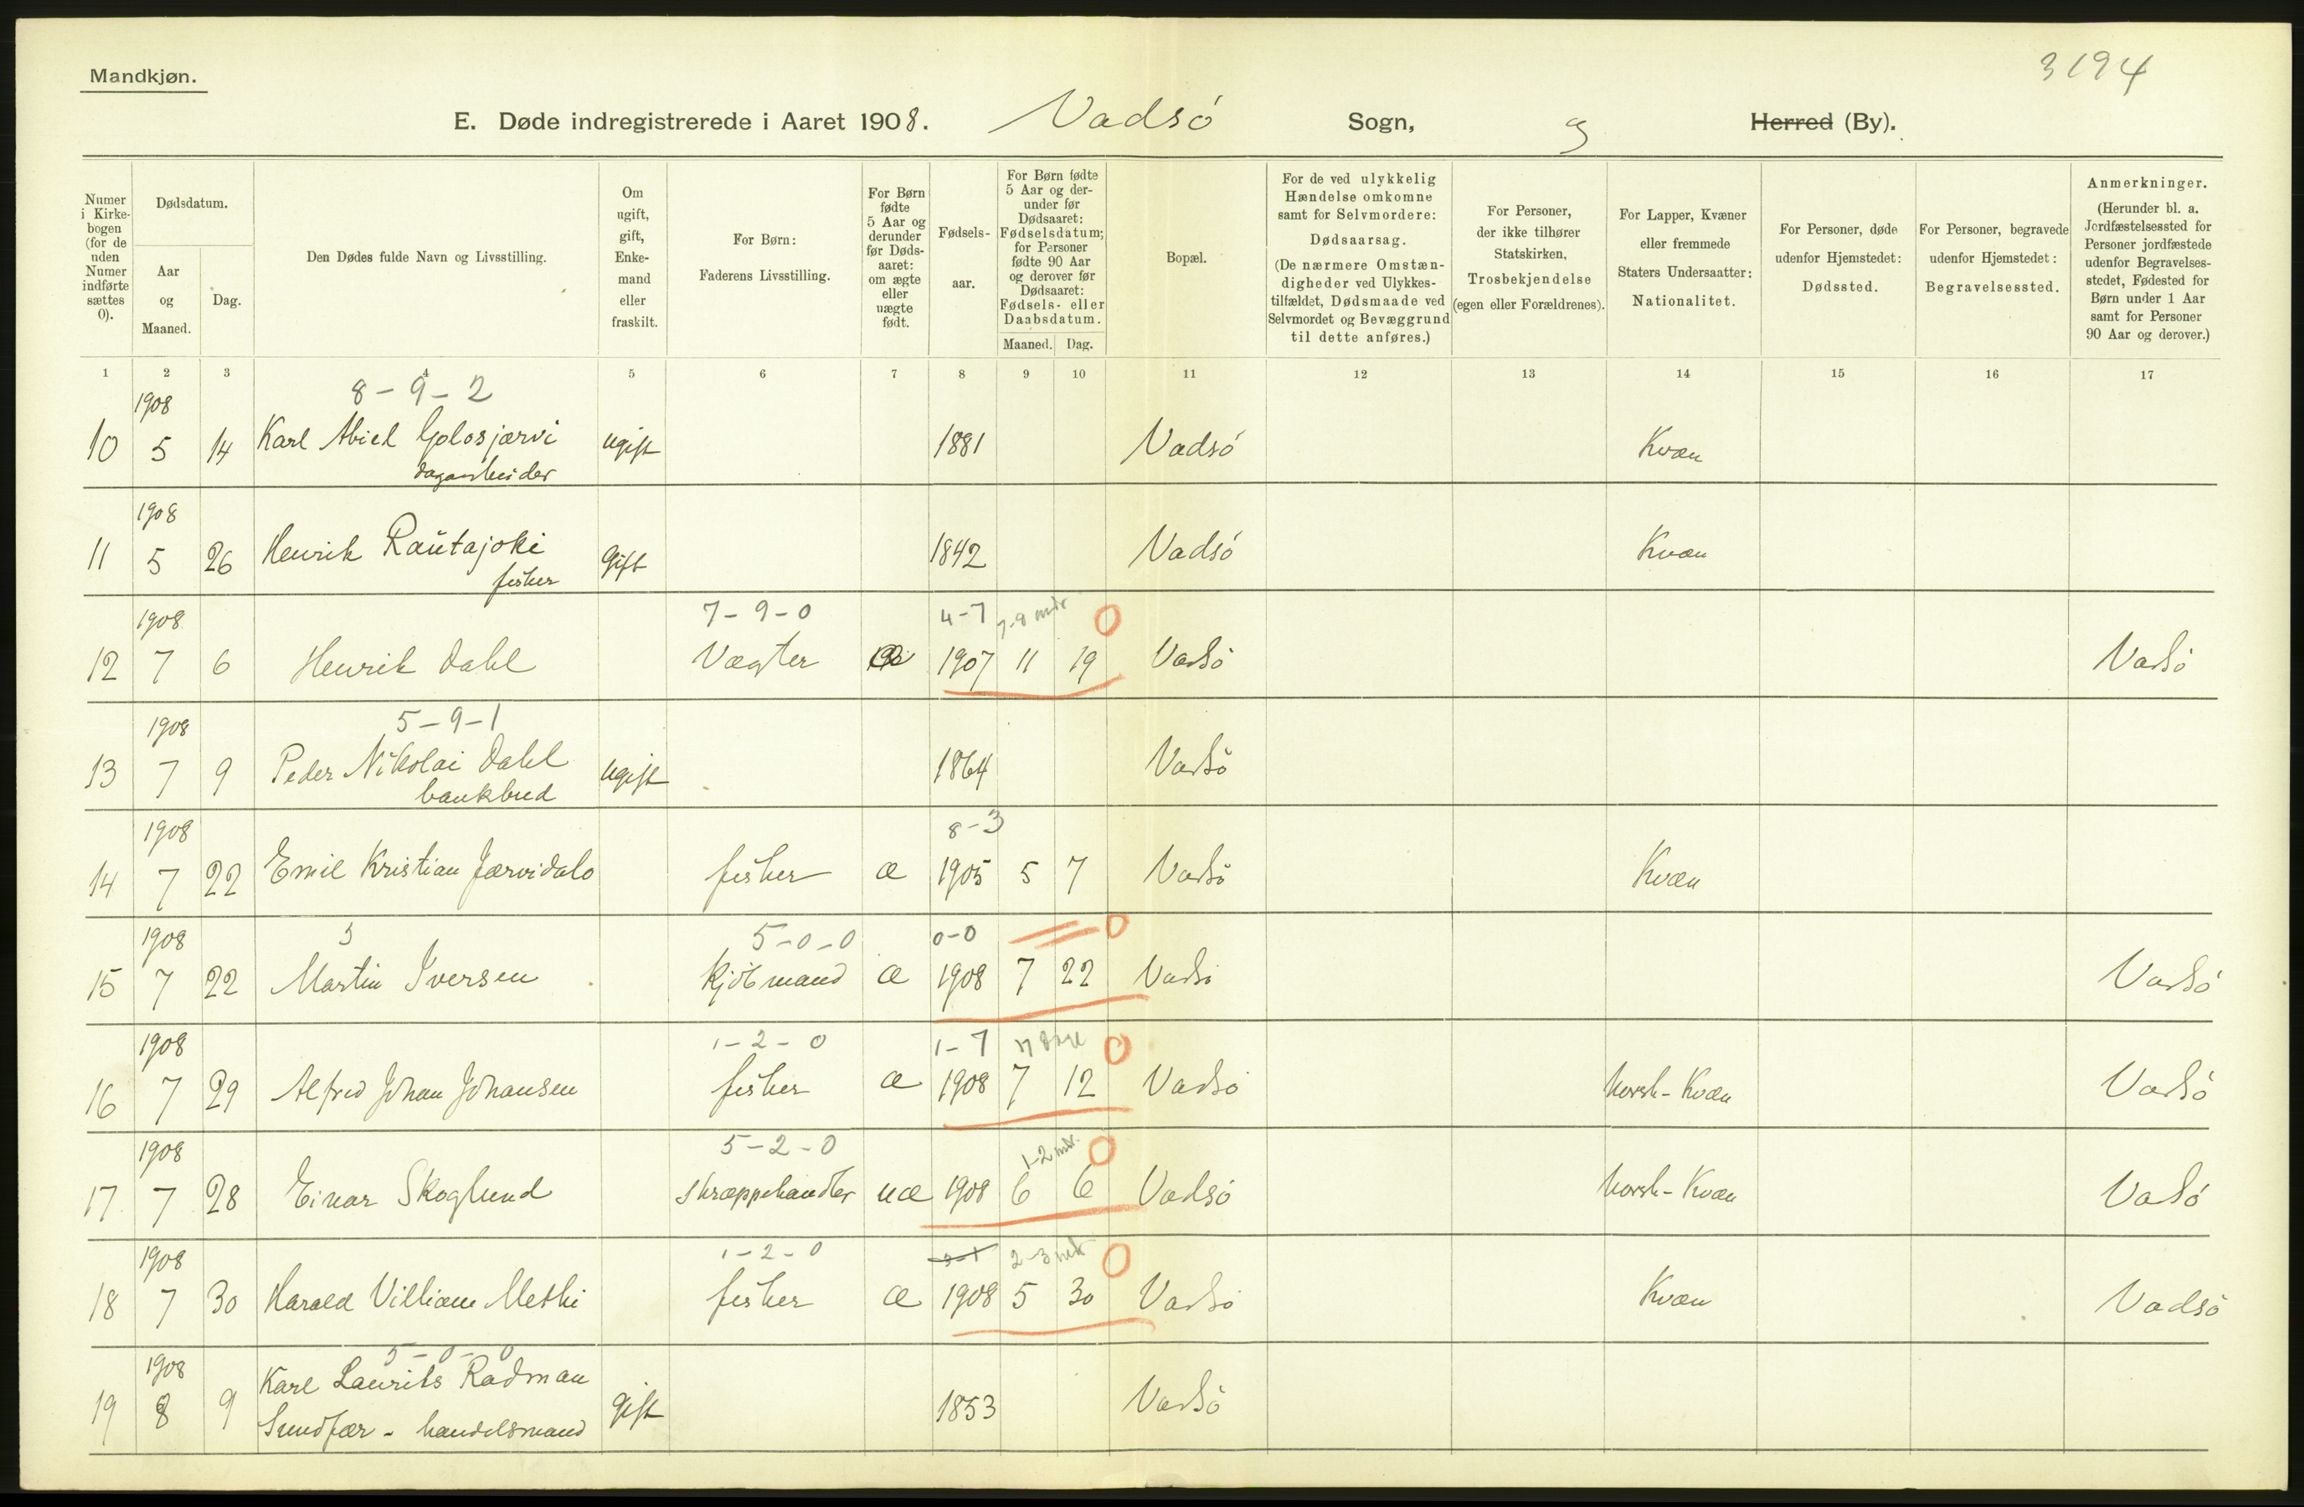 Mandkjøn.
3194
E. Døde indregistrerede i Aaret 1908. Vadsö Sogn, Herred (By).
Numer i Kirkebogen (for de uden Numer indførte sættes 0).
Dødsdatum.
Aar og Maaned.
Dag.
Den Dødes fulde Navn og Livsstilling.
Om ugift, gift, Enkemand eller fraskilt.
For Børn: Faderens Livsstilling.
For Børn fødte 5 Aar og derunder før Dødsaaret: om ægte eller uægte født.
Fødselsaar.
For Børn fødte 5 Aar og derunder før Dødsaaret: Fødselsdatum; for Personer fødte 90 Aar og derover før Dødsaaret: Fødsels- eller Daabsdatum.
Maaned. Dag.
Bopæl.
For de ved ulykkelig Hændelse omkomne samt for Selvmordere: Dødsaarsag. (De nærmere Omstændigheder ved Ulykkestilfældet, Dødsmaade ved Selvmordet og Bevæggrund til dette anføres.)
For Personer, der ikke tilhører Statskirken, Trosbekjendelse (egen eller Forældrenes).
For Lapper, Kvæner eller fremmede Staters Undersaatter: Nationalitet.
For Personer, døde udenfor Hjemstedet: Dødssted.
For Personer, begravede udenfor Hjemstedet: Begravelsessted.
Anmerkninger. (Herunder bl. a. Jordfæstelsessted for Personer jordfæstede udenfor Begravelsesstedet, Fødested for Børn under 1 Aar samt for Personer 90 Aar og derover.)
1 2 3 4 5 6 7 8 9 10 11 12 13 14 15 16 17
1908 8-9-2
10 5 14 Karl Abiel Golosjærvi ugift 1881 Vadsö Kvæn
dagarbeider
1908
11 5 26 Henrik Rautajoki Gift 1842 Vadsö Kvæn
fisker
1908 7-9-0 4-7 7-8 mdr 0
12 7 6 Henrik Dahl Vægter 1907 11 19 Vadsö Vadsö
1908 5-9-1
13 7 9 Peder Nikolai Dahl ugift 1864 Vadsö
bankbud
1908 8-3
14 7 22 Emil Kristian Jærvidalo fisker æ 1905 5 7 Vadsö Kvæn
1908 5 5-0-0 0-0 0
15 7 22 Martin Iversen Kjöbmand æ 1908 7 22 Vadsö Vadsö
1908 1-2-0 1-7 17 dage 0
16 7 29 Alfred Johan Johansen fisker æ 1908 7 12 Vadsö Norsk-Kvæn Vadsö
1908 5-2-0 1-2 mdr. 0
17 7 28 Einar Skoglund skræppehandler uæ 1908 6 6 Vadsö Norsk-Kvæn Vadsö
1908 1-2-0 2-3 mdr 0
18 7 30 Harald Villiam Methi fisker æ 1908 5 30 Vadsö Kvæn Vadsö
1908 5-0-0
19 8 9 Karl Laurits Radman gift 1853 Vadsö
Sundfær - handelsmand